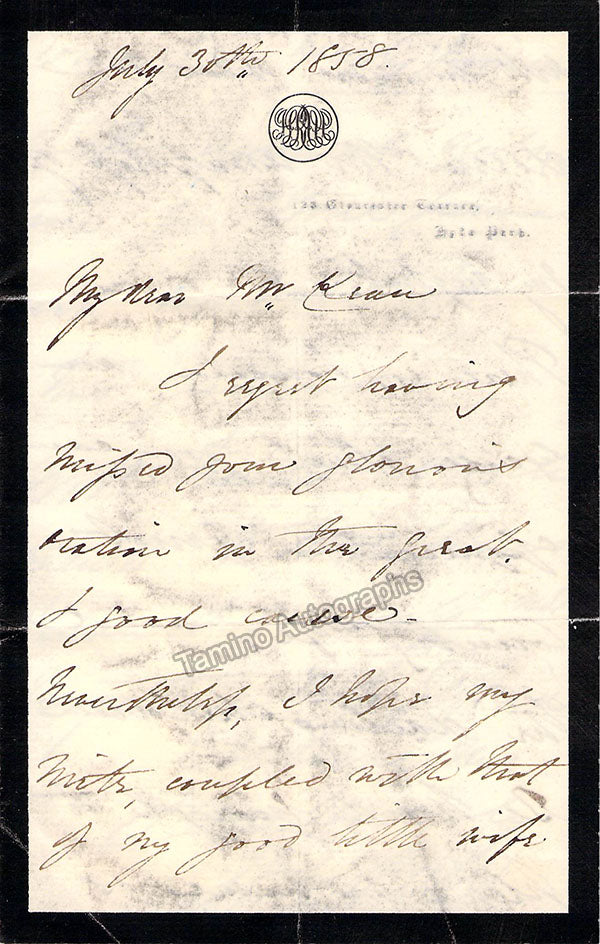 July 30th 1858.
123 Gloucester Terrace,
Hyde Park.
My dear Mr Kean
I regret having
missed your glorious
oration in the great
& good cause -
Nevertheless, I hope my
note, coupled with that
of my good little wife
Tamino Autographs